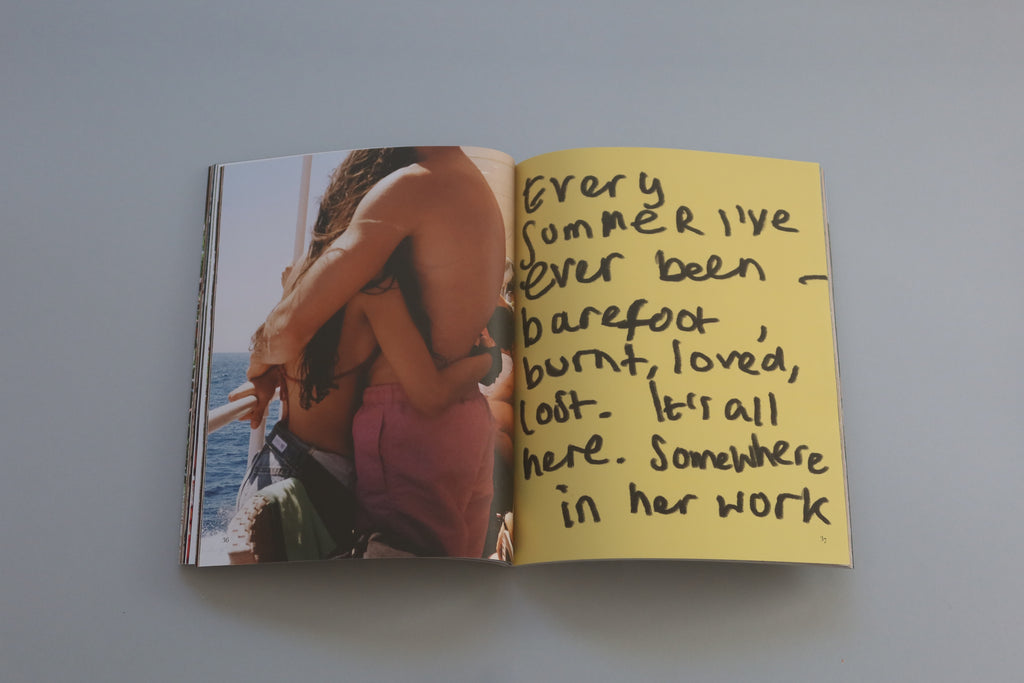 Every
summer I've
ever been –
barefoot,
burnt, loved,
lost. It's all
here. Somewhere
in her work